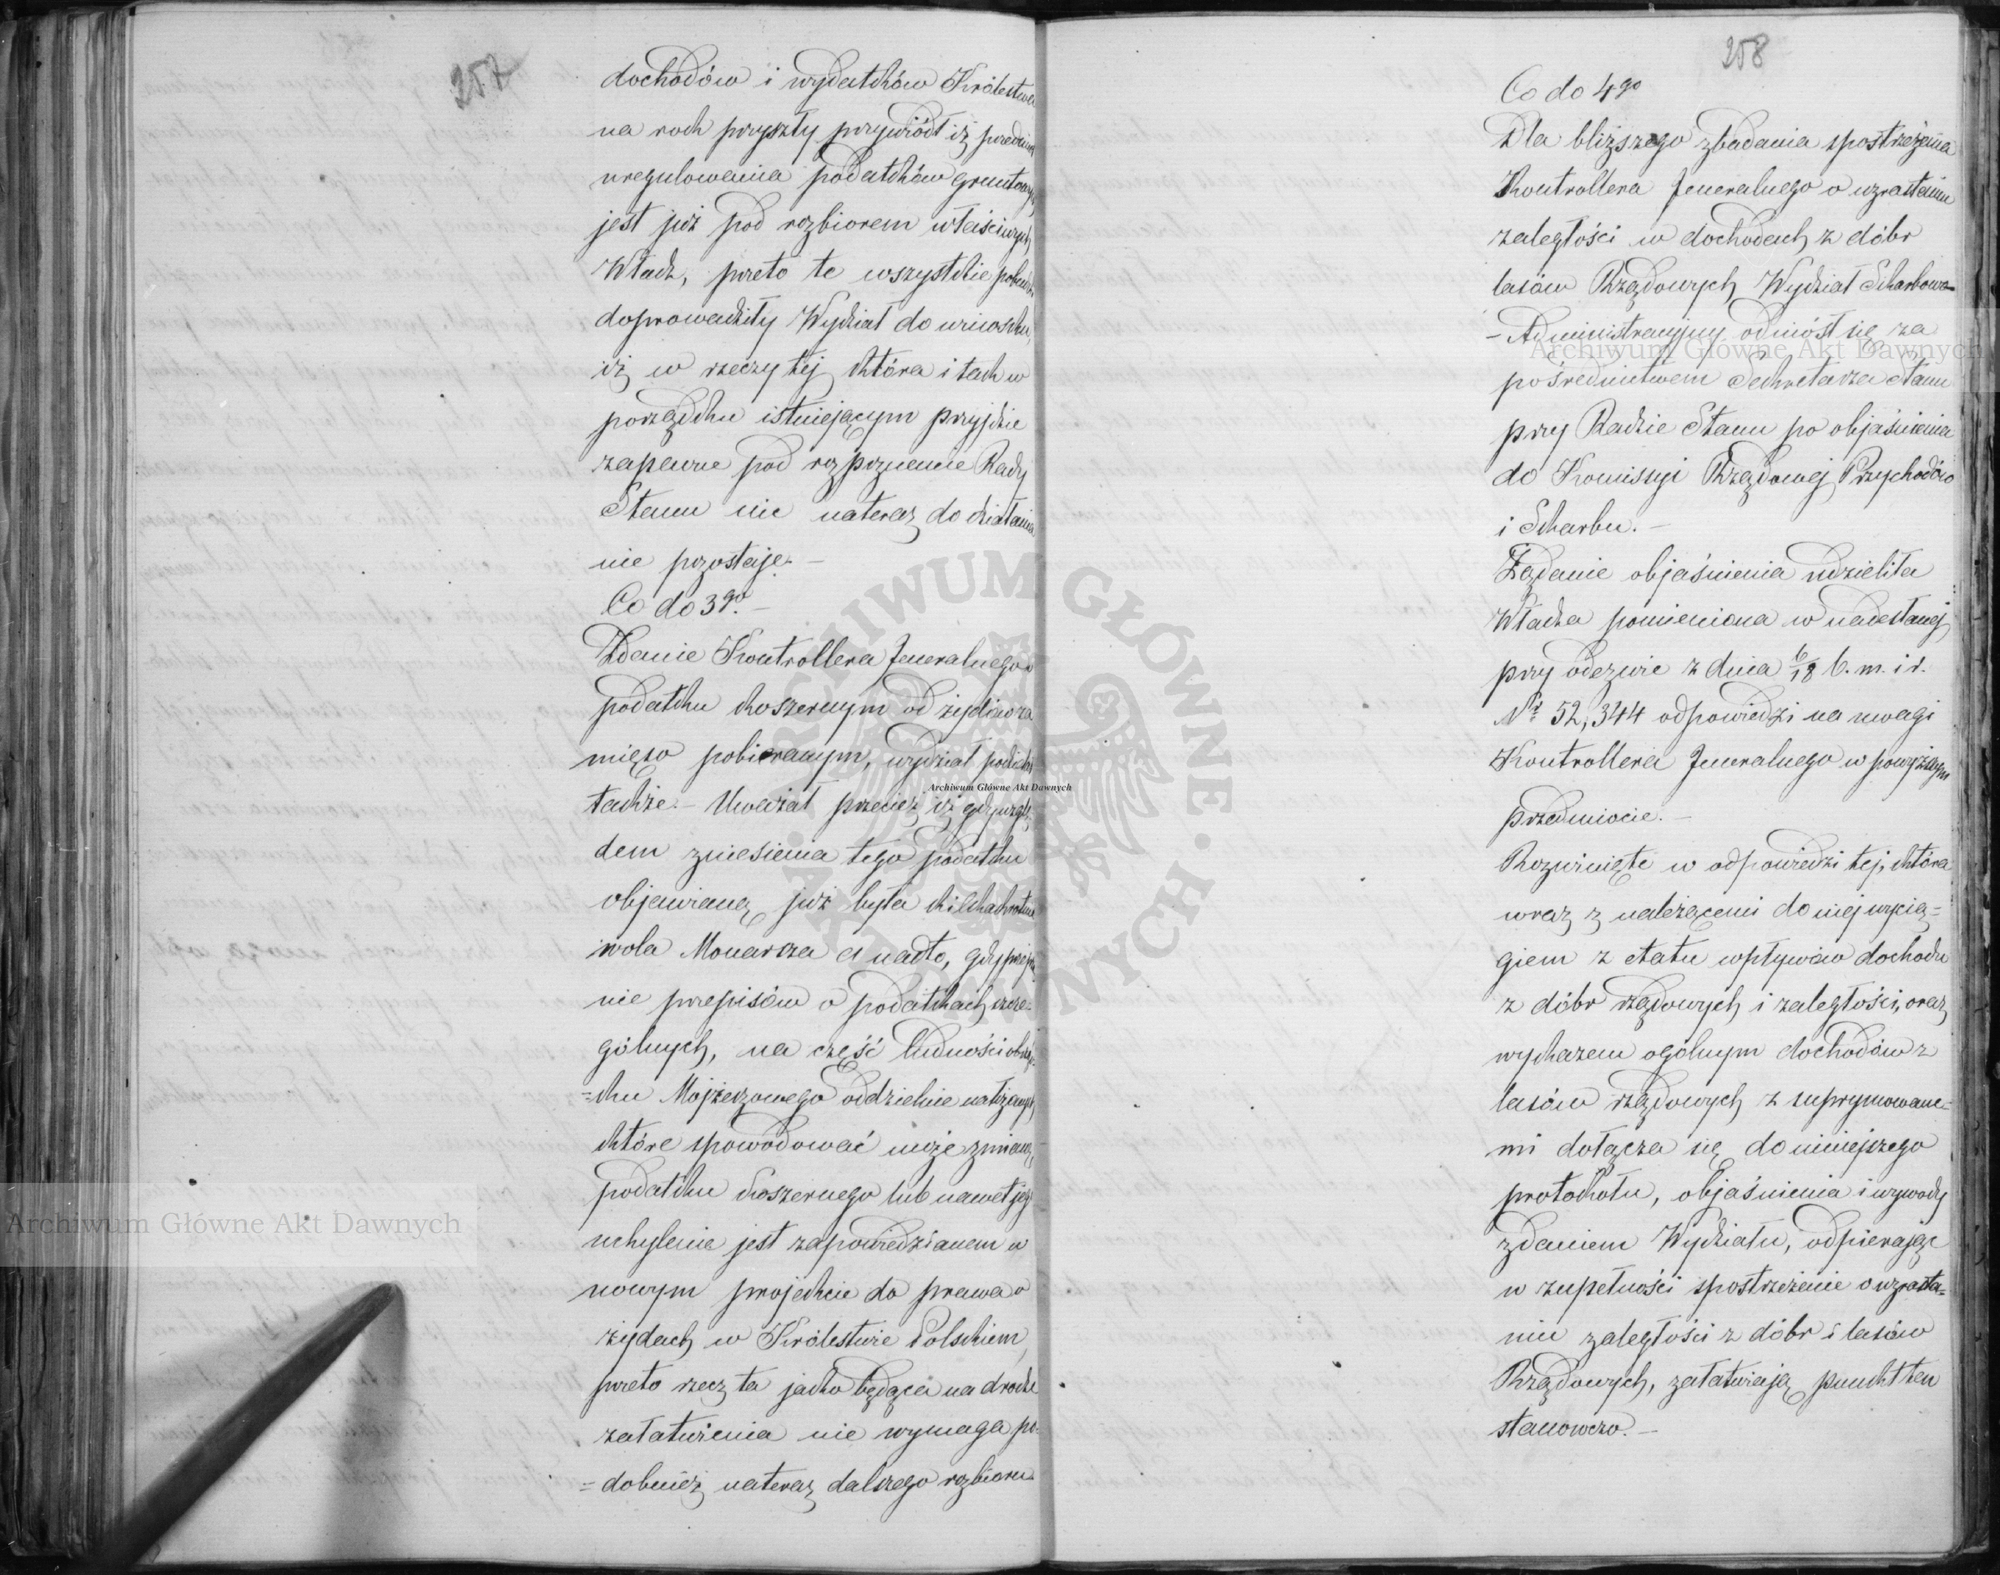 257
dochodów i wydatków Królestwa
na rok przyszły przywiódł iż przedmiot
uregulowania podatków gruntowych
jest już pod rozbiorem właściwych
Władz, przeto te wszystkie pobudki
doprowadziły Wydział do wniosku,
iż w rzeczy tej która i tak w
porządku istniejącym przyjdzie
zapewne pod rozpoznanie Rady
Stanu nic nateraz do działania
nie pozostaje. –
Co do 3go. –
Zdanie Kontrollera Jeneralnego o
podatku koszernym od żydów za
mięso pobieranym, wydział podzielał
także. – Uważał przecież iż gdy wzglę-
dem zniesienia tego podatku
objawioną już była kilkakrotnie
wola Monarsza a nadto, gdy
nie przepisów o podatkach szcze-
gólnych, na część ludności obrząd-
=ku Mojżeszowego oddzielnie nałożonych,
które spowodować może zmianę
podatku koszernego lub nawet jego
uchylenie jest zapowiedzianem w
nowym projekcie do prawa o
żydach w Królestwie Polskiem,
przeto rzecz ta jako będąca na drodze
załatwienia nie wymaga po-
=dobnież nateraz dalszego rozbioru.
258
Co do 4go
Dla bliższego zbadania spostrzeżenia
Kontrollera Jeneralnego o wzrastaniu
zaległości w dochodach z dóbr
lasów Rządowych Wydział Skarbowo
– Administracyjny odniósł się za
pośrednictwem Sekretarza Stanu
przy Radzie Stanu po objaśnienia
do Komissyi Rządowej Przychodów
i Skarbu. –
Żądanie objaśnienia udzieliła
Władza pomieniona w nadesłanej
przy odezwie z dnia 6/18 b. m. i r.
Nr 52,344 odpowiedzi na uwagi
Kontrollera Jeneralnego w powyższym
przedmiocie. –
Rozwinięte w odpowiedzi tej, która
wraz z należącemi do niej wycią=
giem z etatu wpływów dochodu
z dóbr rządowych i zaległości, oraz
wykazem ogólnym dochodów z
lasów rządowych z suprymowane=
mi dołącza się do niniejszego
protokołu, objaśnienia i wywody
zdaniem Wydziału, odpierając
w zupełności spostrzeżenie o wzrasta=
niu zaległości z dóbr i lasów
Rządowych, załatwiają punkt ten
stanowczo. –
Archiwum Główne Akt Dawnych
Archiwum Główne Akt Dawnych
Archiwum Główne Akt Dawnych
ARCHIWUM GŁÓWNE AKT DAWNYCH